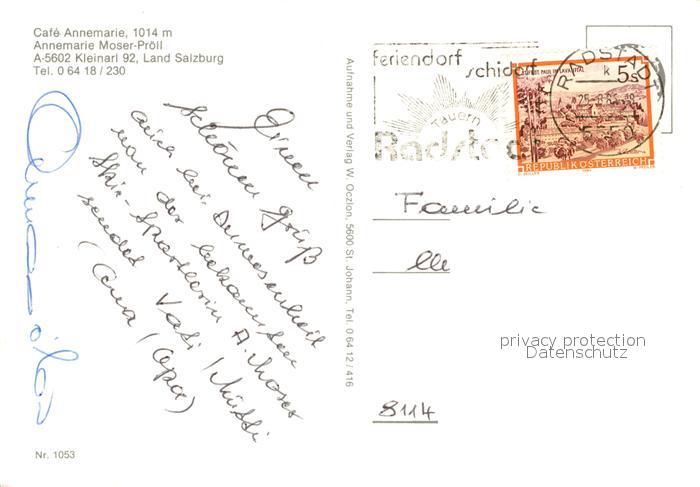 Café Annemarie, 1014 m
Annemarie Moser-Pröll
A-5602 Kleinarl 92, Land Salzburg
Tel. 0 64 18 / 230
Einen
schönen Gruß
auch bei Anwesenheit
von der bekannten
Ski-Sportlerin A. Moser
sendet Vati / Mutti
(Oma / Opa)
Nr. 1053
Aufnahme und Verlag W. Oczlon, 5600 St. Johann, Tel. 0 64 12 / 416
feriendorf
schidorf
Tauern
Radsta
RADSTADT
5s
STIFT ST. PAUL IM LAVANTTAL
REPUBLIK ÖSTERREICH
Familie
privacy protection
Datenschutz
8114